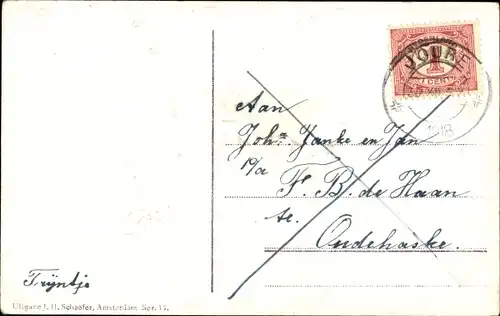 JOURE
1
CENT
1918
Aan
Joh: Janke en Jan
p/a
F. B. de Haan
te.
Oudehaske.
Trijntje
Uitgave J. H. Schaefer, Amsterdam Ser. 17.